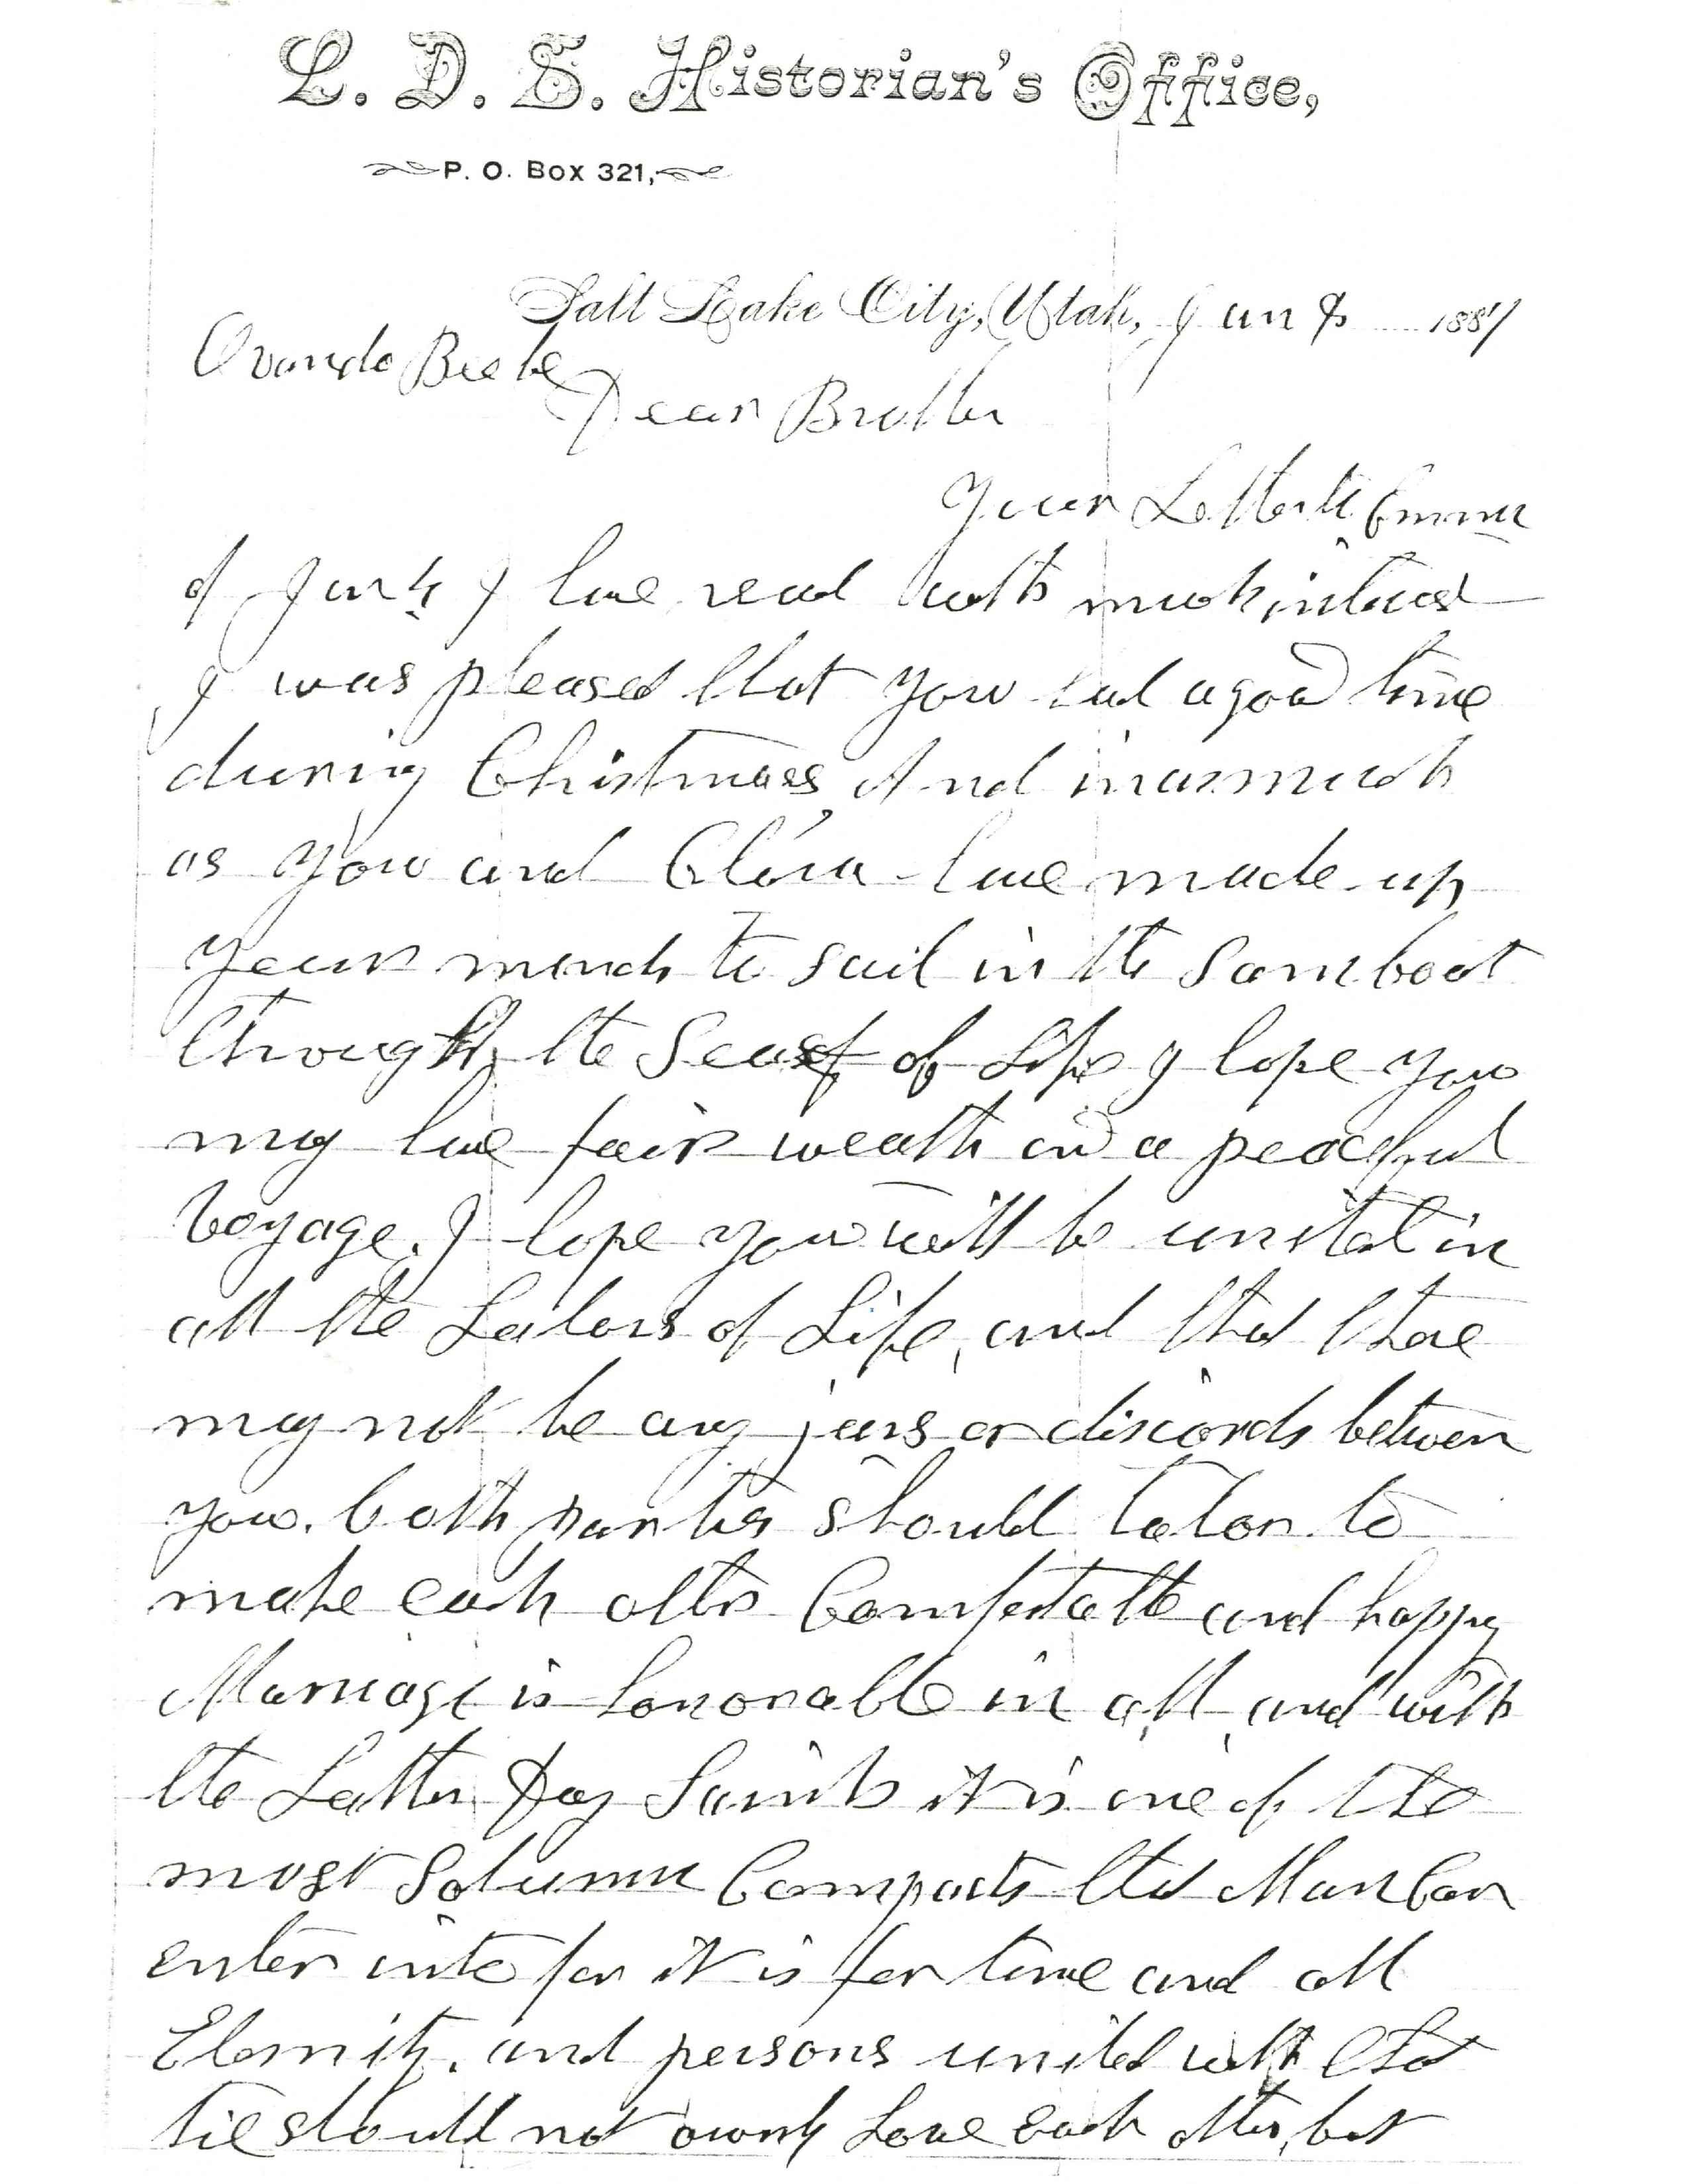 L. D. S. Historian's Office,
P. O. Box 321,
Salt Lake City, Utah, Jan 8 1887
Ovando Beebe
Dear Brother
Your Letter to Emma
of Jan 4 I have read with much interest
I was pleased that you had a good time
during Christmass, And inasmuch
as you and Clara have made up
your minds to sail in the same boat
through the Seas of Life I hope you
may have fair weather and a peaceful
Voyage. I hope you will be united in
all the Labors of Life, and that there
may not be any jars or discords between
you. both parties should labor to
make each other Comfortable and happy
Marriage is honorable in all, and with
the Latter Day Saints it is one of the
most Solumn Compacts that Man Can
enter into for it is for time and all
Eternity. and persons united with that
tie should not ownly Love each other, but